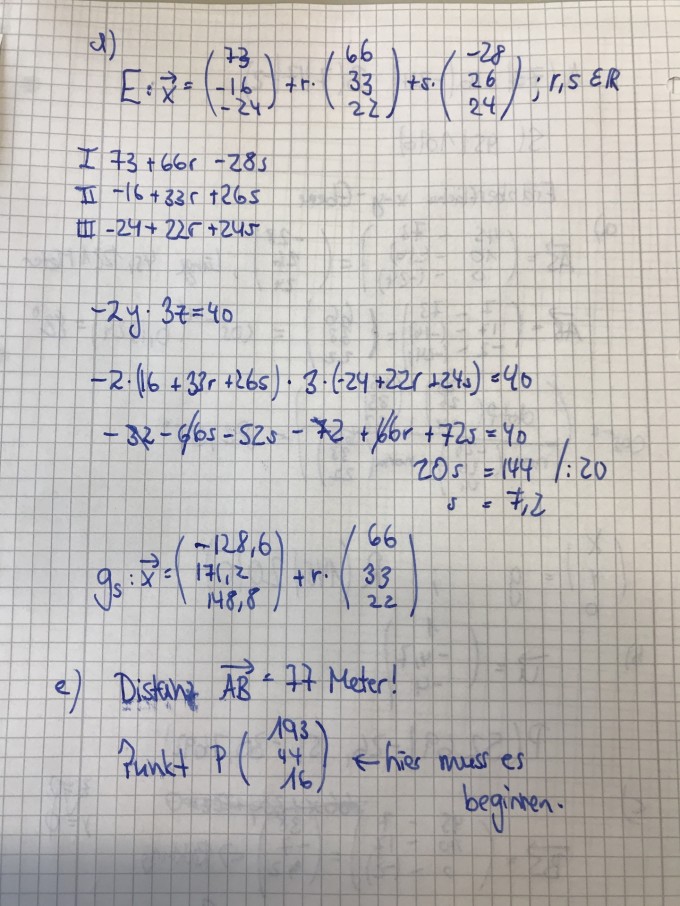 d)
E: x⃗ = (73 -16 -24) + r· (66 33 22) + s· (-28 26 24) ; r,s ∈ ℝ
I 73 + 66r - 28s
II -16 + 33r + 26s
III -24 + 22r + 24s
-2y · 3z = 40
-2·(16 + 33r + 26s) · 3·(-24 + 22r + 24s) = 40
- 32 - 66s - 52s - 72 + 66r + 72s = 40
20s = 144 /: 20
s = 7,2
gs : x⃗ = (-128,6 171,2 148,8) + r· (66 33 22)
e) Distanz AB⃗ = 77 Meter!
Punkt P (193 44 16) ← hier muss es
beginnen.